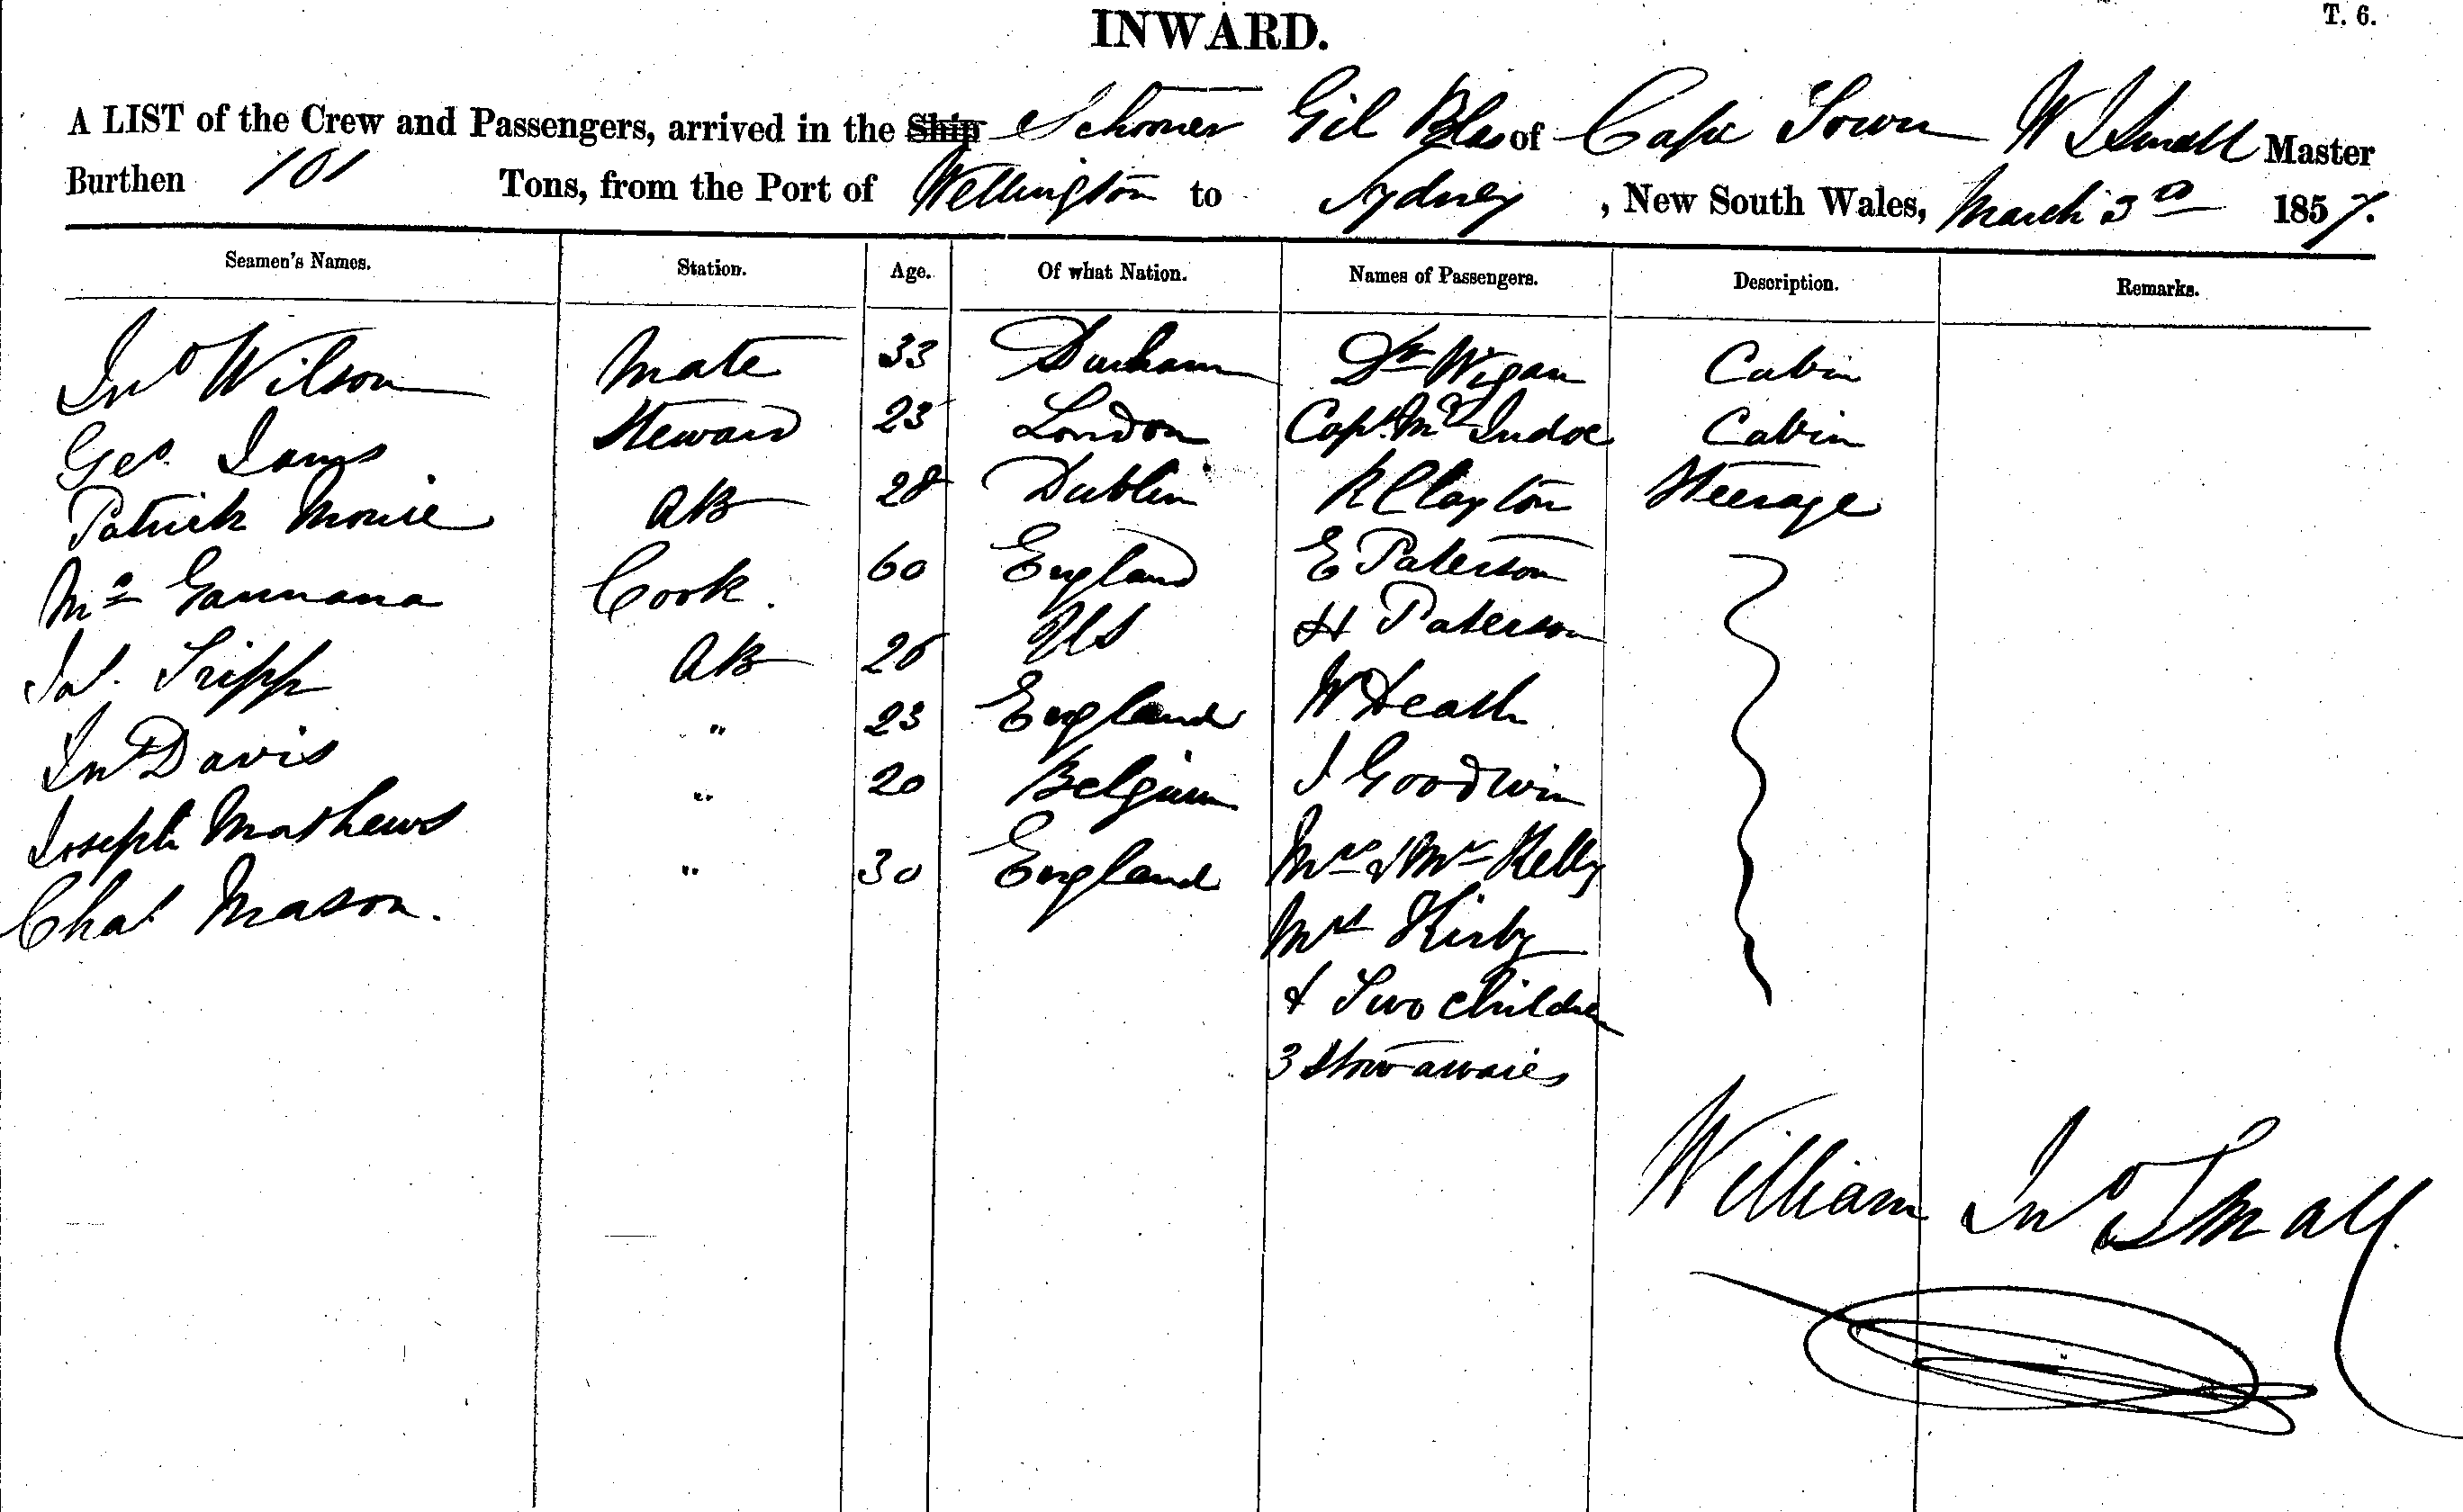 INWARD.
T. 6.
A LIST of the Crew and Passengers, arrived in the Ship Schooner Gil Blas of Cape Town W J Small Master
Burthen 101 Tons, from the Port of Wellington to Sydney, New South Wales, March 3rd 1857.
Seamen's Names. Station. Age. Of what Nation. Names of Passengers. Description. Remarks.
Jno Wilson Mate 33 Durham Dr Wigan Cabin
Geo. Steward 23 London Capt. Mc Indoe Cabin
Patrick AB 28 Dublin R Clayton Steerage
Cook. 60 England E Paterson
Jas. Tripp AB 26 US H Paterson
Jno Davis " 23 England W Heath
Joseph Mathews " 20 Belgium J Goodwin
Chas Mason. " 30 England Mrs & Mr Kelly
Mrs Kirby
& Two Children
3 Stowawaies
William Jno Small